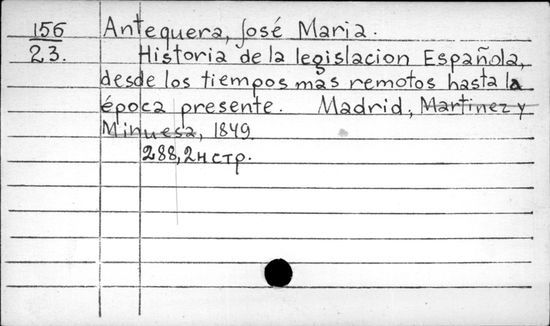 156 Antequera, José Maria.
23. Historia de la legislacion Española,
desde los tiempos más remotos hasta la
época presente. Madrid, Martinez y
Minuesa, 1849.
288, 2н стр.